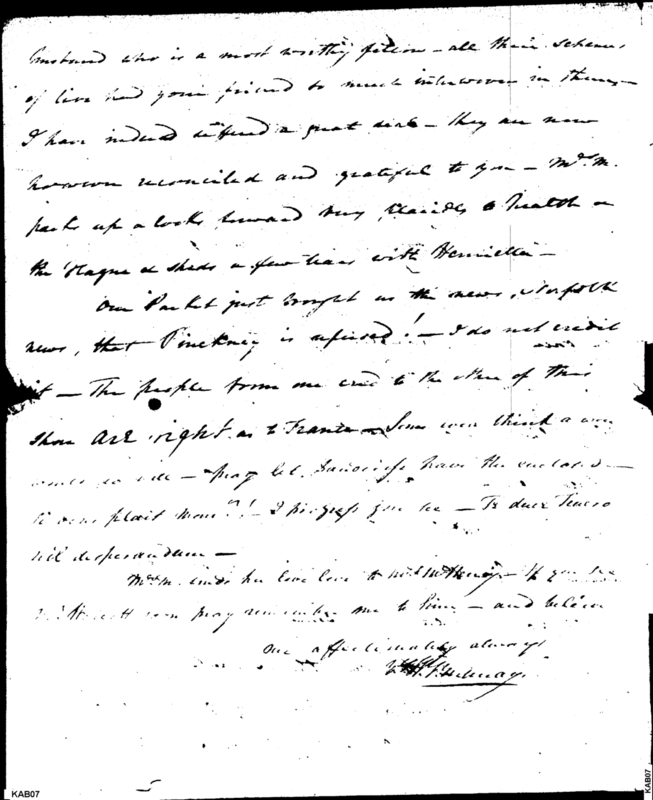 husband who is a most worthy fellow – all their schemes
of live had your friend so much interwoven in them –
I have indeed suffered a great deal – they are now
however reconciled and grateful to you – Mrs. M.
packs up & looks forward very to health &
the Hague & sheds a few tears with Henrietta –
Our Packet just brought us the news, Norfolk
news, that Pinckney is refused! – I do not credit
it – The people from one end to the other of this
shore ARE right as to France – Some even think a war
would do – pray let have the enclosed –
plait – I you see – Te duce Teucro
nil desperandum –
Mrs. M. sends her love to Mrs. McHenry – If you see
soon pray remember me to him – and believe
me affectionately always
KAB07
KAB07